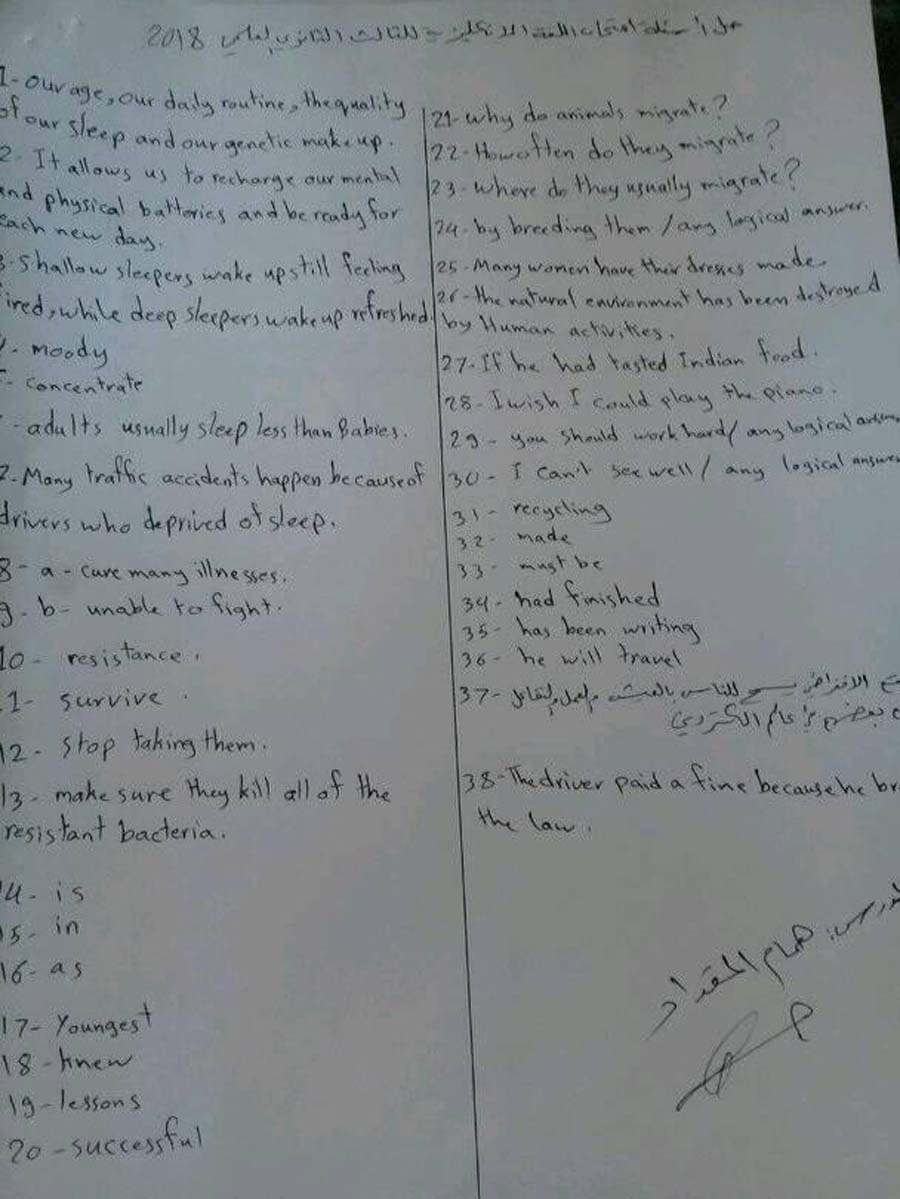 حل أسئلة امتحان اللغة الانكليزية للثالث الثانوي العلمي 2018
1- our age, our daily routine, the quality
of our sleep and our genetic makeup.
2- It allows us to recharge our mental
and physical batteries and be ready for
each new day.
3- Shallow sleepers wake up still feeling
ired, while deep sleepers wake up refreshed.
- moody
- concentrate
- adults usually sleep less than Babies.
7- Many traffic accidents happen because of
drivers who deprived of sleep.
8- a - cure many illnesses.
9- b- unable to fight.
10- resistance.
11- survive.
12- stop taking them.
13- make sure they kill all of the
resistant bacteria.
14- is
15- in
16- as
17- Youngest
18- knew
19- lessons
20 - successful
21- why do animals migrate?
22- How often do they migrate?
23- where do they usually migrate?
24- by breeding them / any logical answer.
25- Many women have their dresses made.
26- the natural environment has been destroyed
by Human activities.
27- If he had tasted Indian food.
28- I wish I could play the piano.
29- you should work hard / any logical answ
30- I can't see well / any logical answe
31- recycling
32- made
33- must be
34- had finished
35- has been writing
36- he will travel
37- الافتراضي يسمح للناس بالعيش والعمل والتفاعل
بعضهم بعالم الكتروني
38- The driver paid a fine because he br
the law.
المدرس: همام المقداد